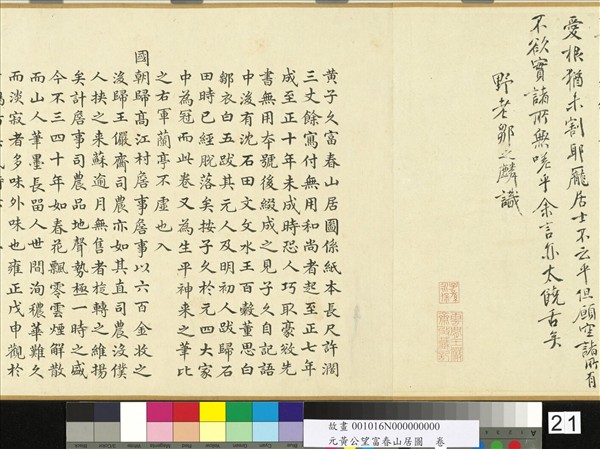 愛根猶未割耶龐居士不云乎但願空諸所有
不欲實諸所無嗟乎余言亦太饒舌矣
野老鄒之麟識
黃子久富春山居圖係紙本長尺許濶
三丈餘寫付無用和尚者起至正七年
成至正十年未成時恐人巧取豪敚先
書無用本號後綴成之見子久自記語
中後有沈石田文文水王百穀董思白
鄒衣白五跋其元人及明初人跋歸石
田時已經脫落矣按子久於元四大家
中為冠而此卷又為生平神來之筆比
之右軍蘭亭不虛也入
國朝歸髙江村詹事詹事以六百金收之
後歸王儼齋司農亦如其直司農沒僕
人挾之来蘇逾月無售者旋轉之維揚
矣計詹事司農品地聲勢極一時之盛
今不三四十年如春花飄零雲煙解散
而山人筆墨長留人世間洵穠華難久
而淡寂者多味外味也雍正戊申觀於
故畫 001016N000000000
元黃公望富春山居圖 卷
21